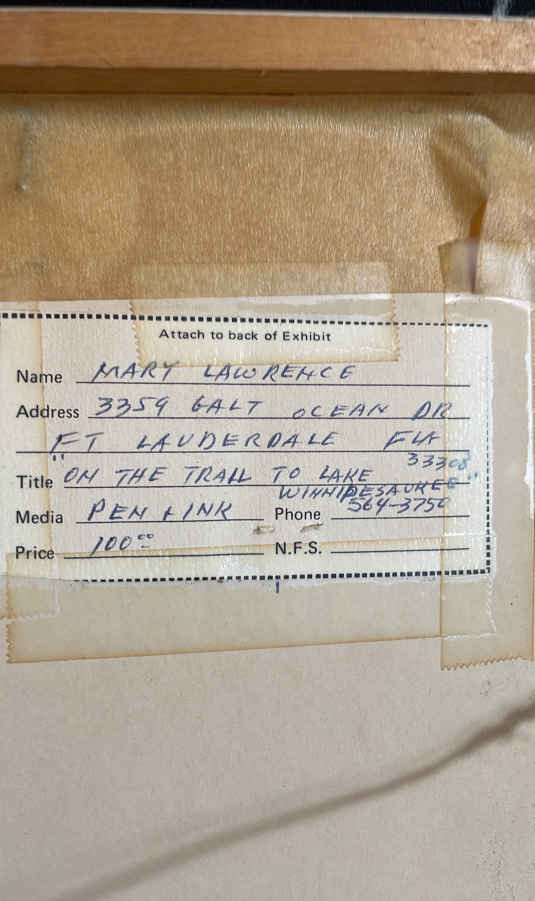 Attach to back of Exhibit
Name MARY LAWRENCE
Address 3359 GALT OCEAN DR
FT LAUDERDALE FLA
33308
Title "ON THE TRAIL TO LAKE
WINNIPESAUKEE"
Media PEN & INK Phone 564-3750
Price 100.00 N.F.S.